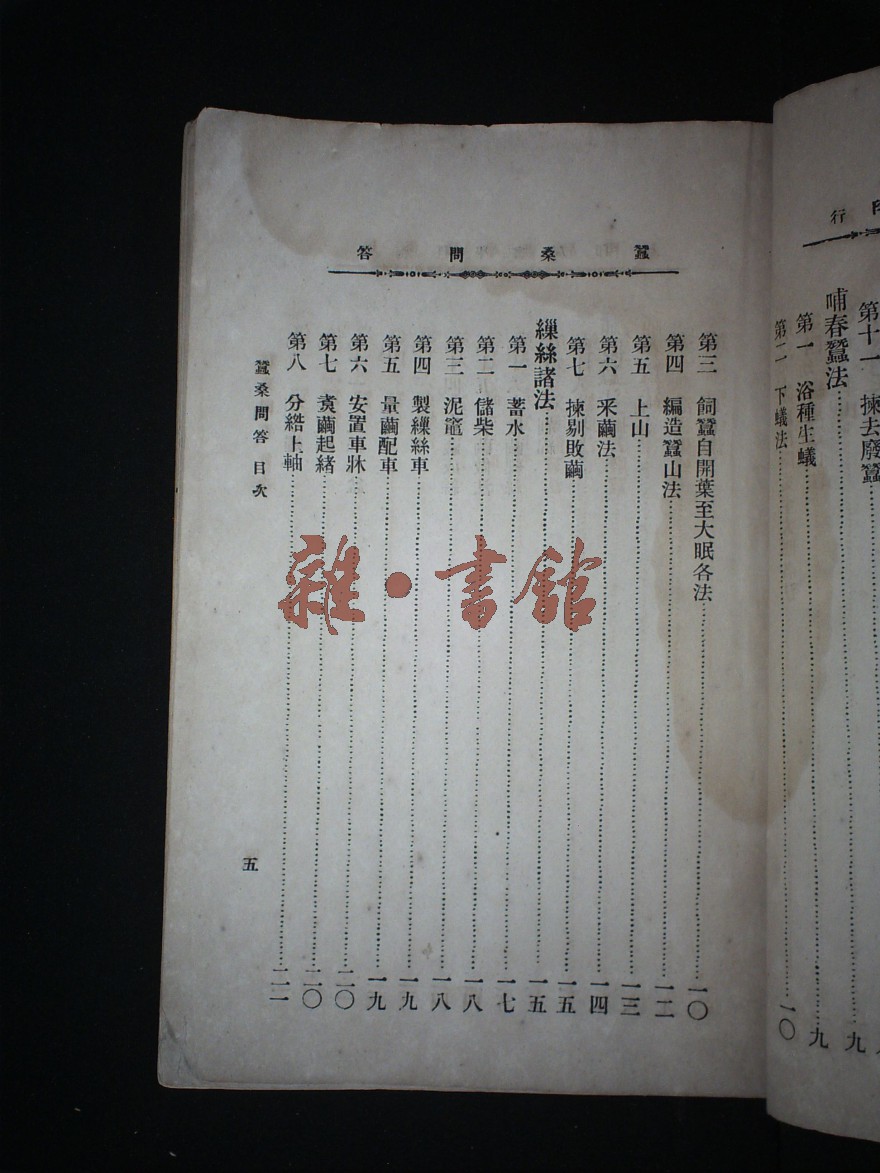 行
第十一 揀去廢蠶 九
哺春蠶法 九
第一 浴種生蟻 九
第二 下蟻法 一〇
蠶桑問答
第三 飼蠶自開葉至大眠各法 一〇
第四 編造蠶山法 一二
第五 上山 一三
第六 釆繭法 一四
第七 揀剔敗繭 一五
繅絲諸法 一五
第一 蓄水 一七
第二 儲柴 一八
第三 泥竈 一八
第四 製繅絲車 一九
第五 量繭配車 一九
第六 安置車牀 二〇
第七 煑繭起緒 二〇
第八 分綹上軸 二一
蠶桑問答 目次
五
雜·書館